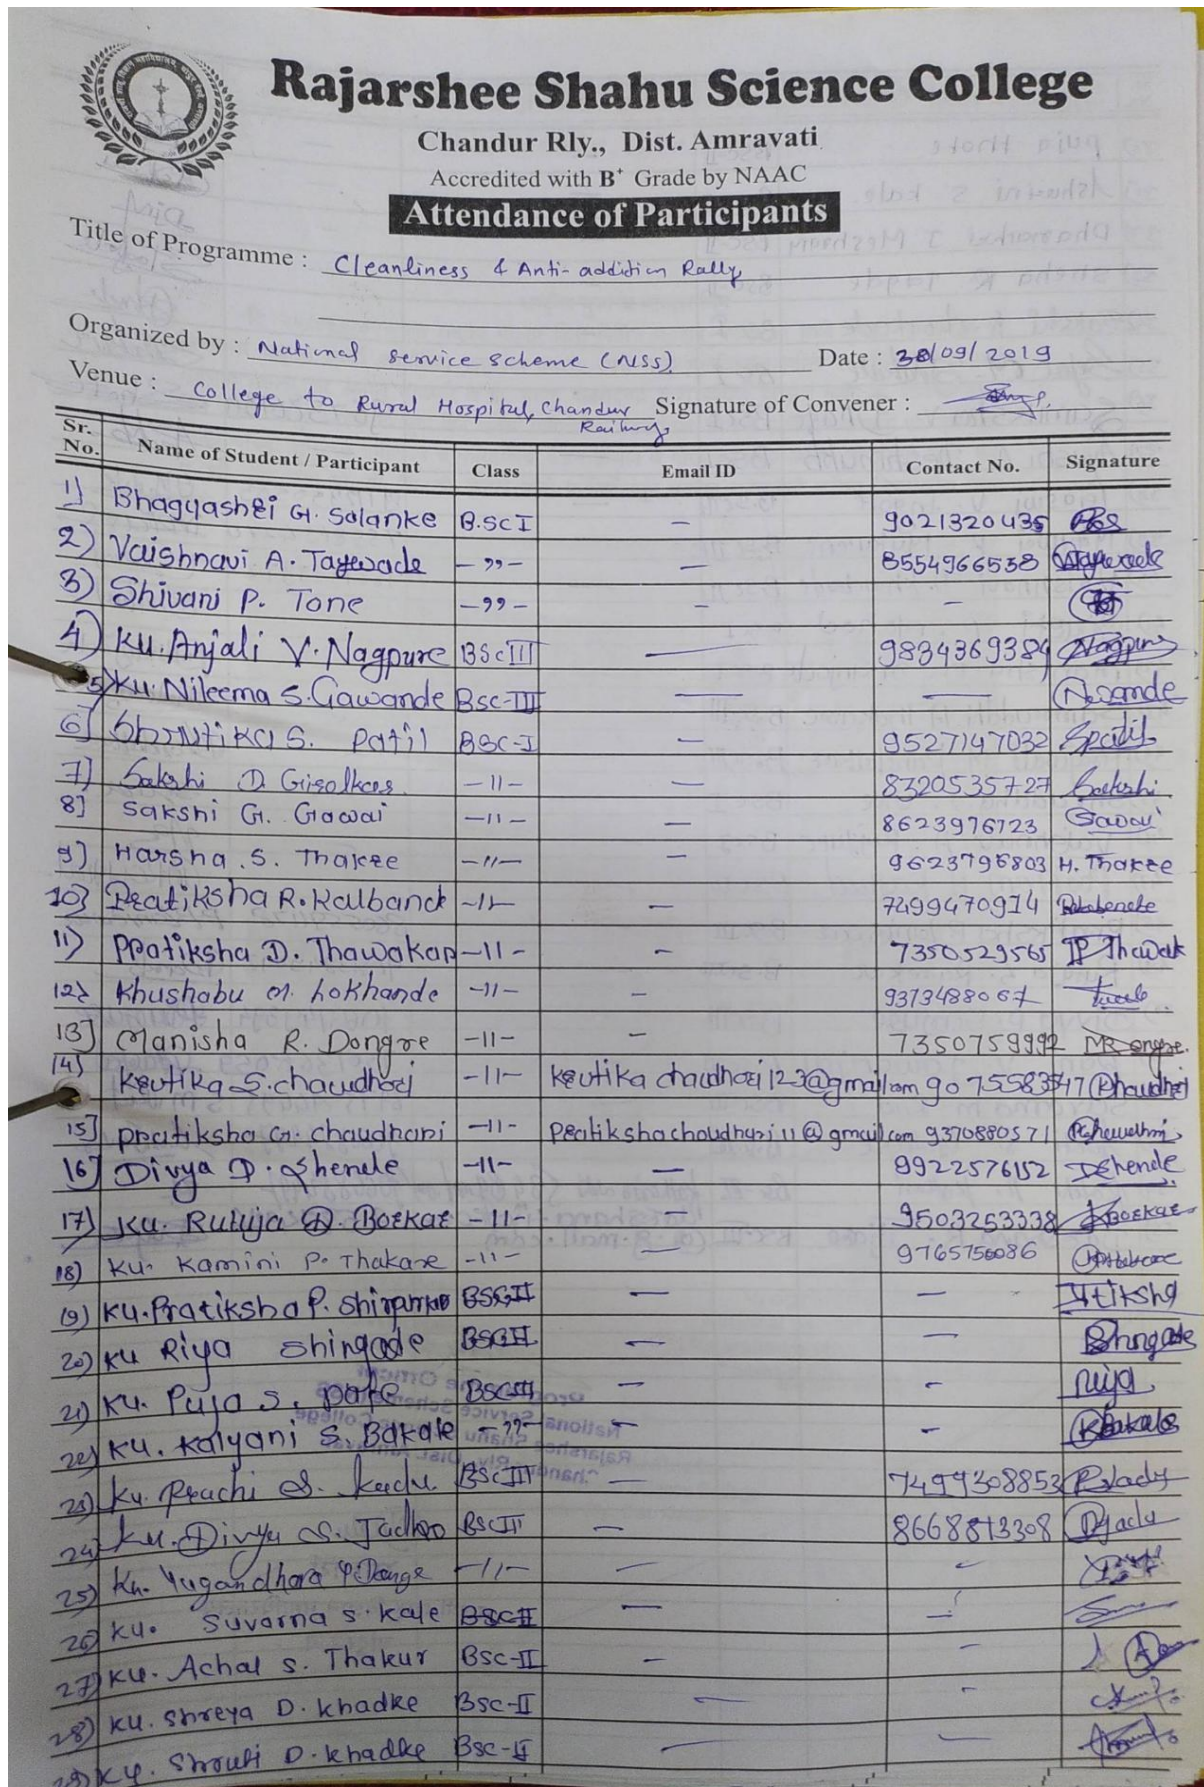 Rajarshee Shahu Science College
Chandur Rly., Dist. Amravati
Accredited with B+ Grade by NAAC
Attendance of Participants
Title of Programme : Cleanliness & Anti-addiction Rally
Organized by : National Service Scheme (NSS) Date : 30/09/2019
Venue : College to Rural Hospital, Chandur Railway Signature of Convener :
Sr. No. Name of Student / Participant Class Email ID Contact No. Signature
1] Bhagyashri G. Solanke B.Sc I — 9021320435
2) Vaishnavi A. Tayewade -"- — 8554966538 Tayewade
3) Shivani P. Tone -"- — —
4) Ku. Anjali V. Nagpure BSc III — 9834369384 Nagpure
5) Ku. Nileema S. Gawande Bsc-III — —
6] Shrutika S. Patil BSC-I — 9527147032 Spatil
7] Sakshi D. -11- — 8320535727 Sakshi
8] Sakshi G. Gawai -11- — 8623976723 Gawai
9) Harsha S. Thakre -11- — 9623796803 H. Thakre
10] Pratiksha R. Kalbande -11- — 7499470914
11) Pratiksha D. Thawakar -11- — 7350529565
12) Khushabu M. Lokhande -11- — 9373488067
13] Manisha R. Dongre -11- — 7350759992 MR Dongre.
14) Krutika S. Chaudhari -11- krutika chaudhari123@gmail.com 9075583547 Chaudhari
15] Pratiksha G. Chaudhari -11- pratikshachoudhari11@gmail.com 9370880571
16) Divya D. Shende -11- — 9922576152 DShende
17) Ku. Rutuja D. Borkar -11- — 9503253338 Borkar
18) Ku. Kamini P. Thakare -11- — 9765756086
19) Ku. Pratiksha P. BSC II — — प्रतिक्षा
20) Ku Riya Shingade BSC II — — Shingade
21) Ku. Puja S. Dafe BSC III — —
22) Ku. Kalyani S. Bakale -"- — — KBakale
23) Ku. Prachi S. Kadu BSc III — 7499308853
24) Ku. Divya S. Jadhao BSc III — 8668813308
25) Ku. Yugandhara Dange -11- — —
26) Ku. Suvarna S. Kale BSC II — —
27) Ku. Achal S. Thakur Bsc-II — —
28) Ku. Shreya D. Khadke Bsc-II — —
29) Ku. Shruti D. Khadke Bsc-II — —